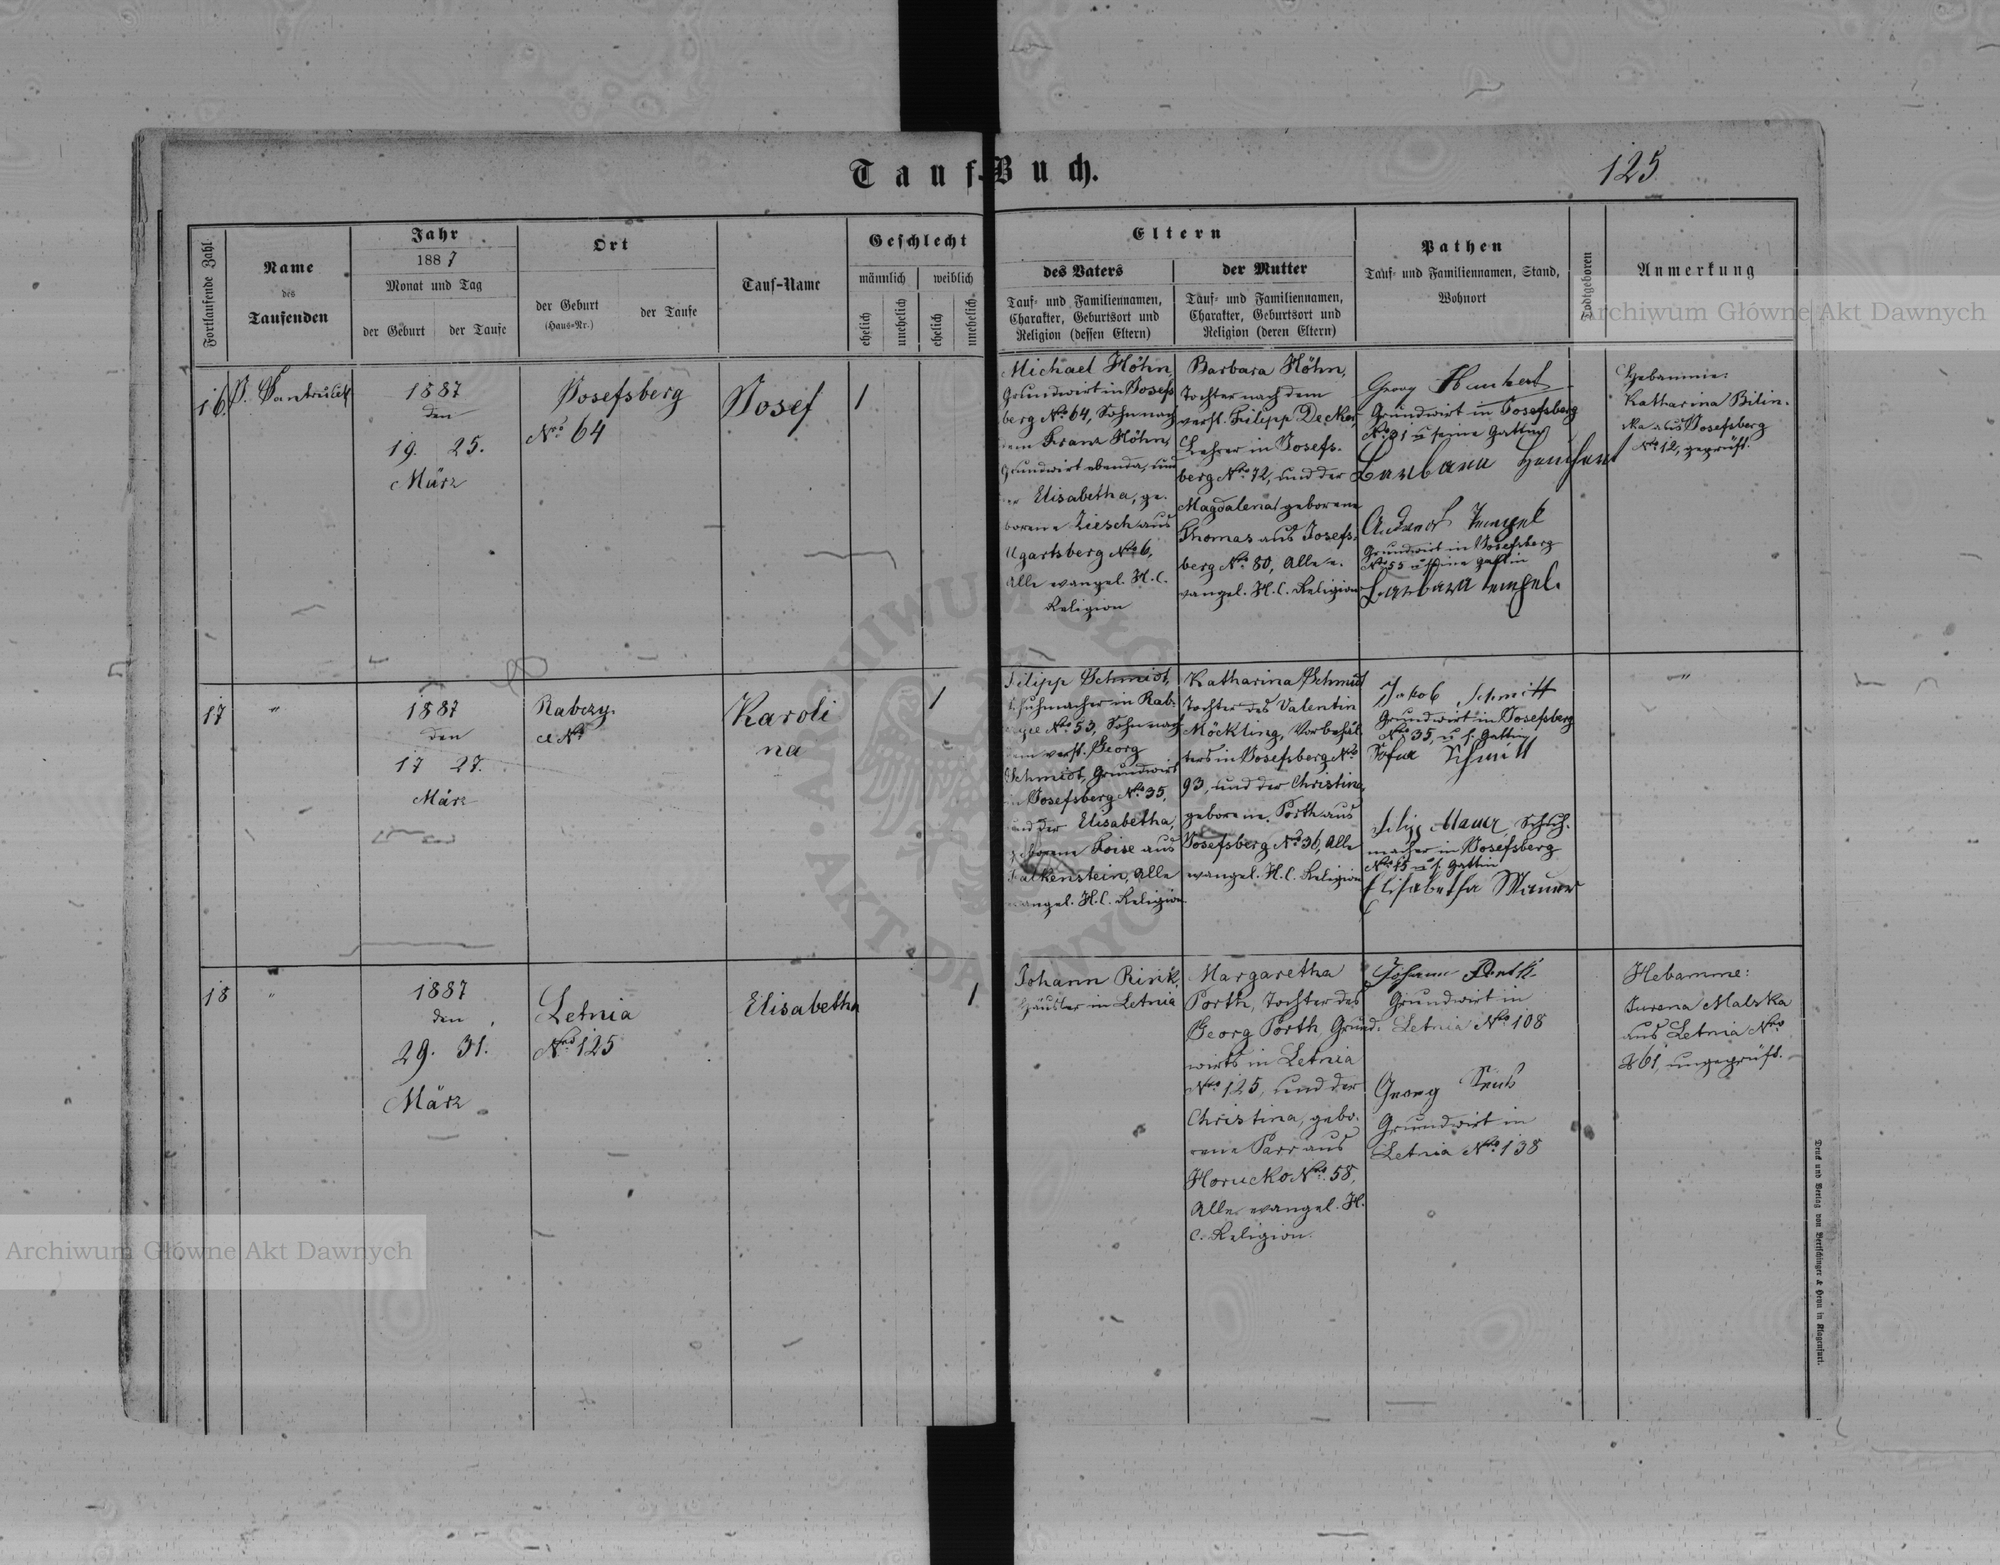 Tauf-Buch.
125
Fortlaufende Zahl
Name
des
Taufenden
Jahr
1887
Monat und Tag
der Geburt
der Taufe
Ort
der Geburt
(Haus=Nr.)
der Taufe
Tauf-Name
Geschlecht
männlich
weiblich
ehelich
unehelich
ehelich
unehelich
Eltern
des Vaters
Tauf= und Familiennamen,
Charakter, Geburtsort und
Religion (dessen Eltern)
der Mutter
Tauf= und Familiennamen,
Charakter, Geburtsort und
Religion (deren Eltern)
Pathen
Tauf= und Familiennamen, Stand,
Wohnort
Todtgeboren
Anmerkung
16.
1887
den
19. 25.
März
Josefsberg
Nro 64
Josef
1
Michael Höhn,
Grundwirt in Josefs
berg Nro 64, Sohn nach
dem Franz Höhn,
Grundwirt ebenda, und
Elisabetha, ge-
borene Ziesch aus
Ugartsberg Nro 6,
Alle evangel. H. C.
Religion
Barbara Höhn,
Tochter nach dem
verst. Filipp Decker,
Lehrer in Josefs-
berg Nro 72, und der
Magdalena geborene
Thomas aus Josefs-
berg Nro 80, Alle e-
vangel. H. C. Religion
Georg
Grundwirt in Josefsberg
u seine Gattin
Barbara
Grundwirt in Josefsberg
Nro 55 u seine Gattin
Barbara
Hebamme:
Katharina Bilin-
ska aus Josefsberg
Nro 12, geprüft.
17
"
1887
den
17 27.
März
Rabczy-
ce Nro
Karoli
na
1
Filipp Schmidt,
Schuhmacher in Rab-
czyce Nro 53, Sohn nach
dem verst. Georg
Schmidt, Grundwirt
in Josefsberg Nro 35,
und der Elisabetha,
geborene Foise aus
Falkenstein, Alle
evangel. H. C. Religion
Katharina Schmidt
Tochter des Valentin
Möckling, Vorbehäl-
ters in Josefsberg Nro
93, und der Christina,
geborene Porth aus
Josefsberg Nro 36, Alle
evangel. H. C. Religion
Jakob Schmitt
Grundwirt in Josefsberg
Nro 35, u s. Gattin
Sofia Schmitt
Filipp Mauer, Schuh-
macher in Josefsberg
u s. Gattin
Elisabetha Mauer
"
18
"
1887
den
29. 31.
März
Letnia
Nro 125
Elisabetha
1
Johann Rink,
Häusler in Letnia
Margaretha
Porth, Tochter des
Georg Porth, Grund-
wirts in Letnia
Nro 125, und der
Christina, gebo-
rene Parr aus
Horucko Nro 58,
Alle evangel. H.
C. Religion.
Johann
Grundwirt in
Letnia Nro 108
Georg
Grundwirt in
Letnia Nro 138
Hebamme:
Malska
aus Letnia Nro
61, ungeprüft.
Druck und Verlag von Bertschinger & Heyn in Klagenfurt.
Archiwum Główne Akt Dawnych
Archiwum Główne Akt Dawnych
ARCHIWUM GŁÓWNE AKT DAWNYCH